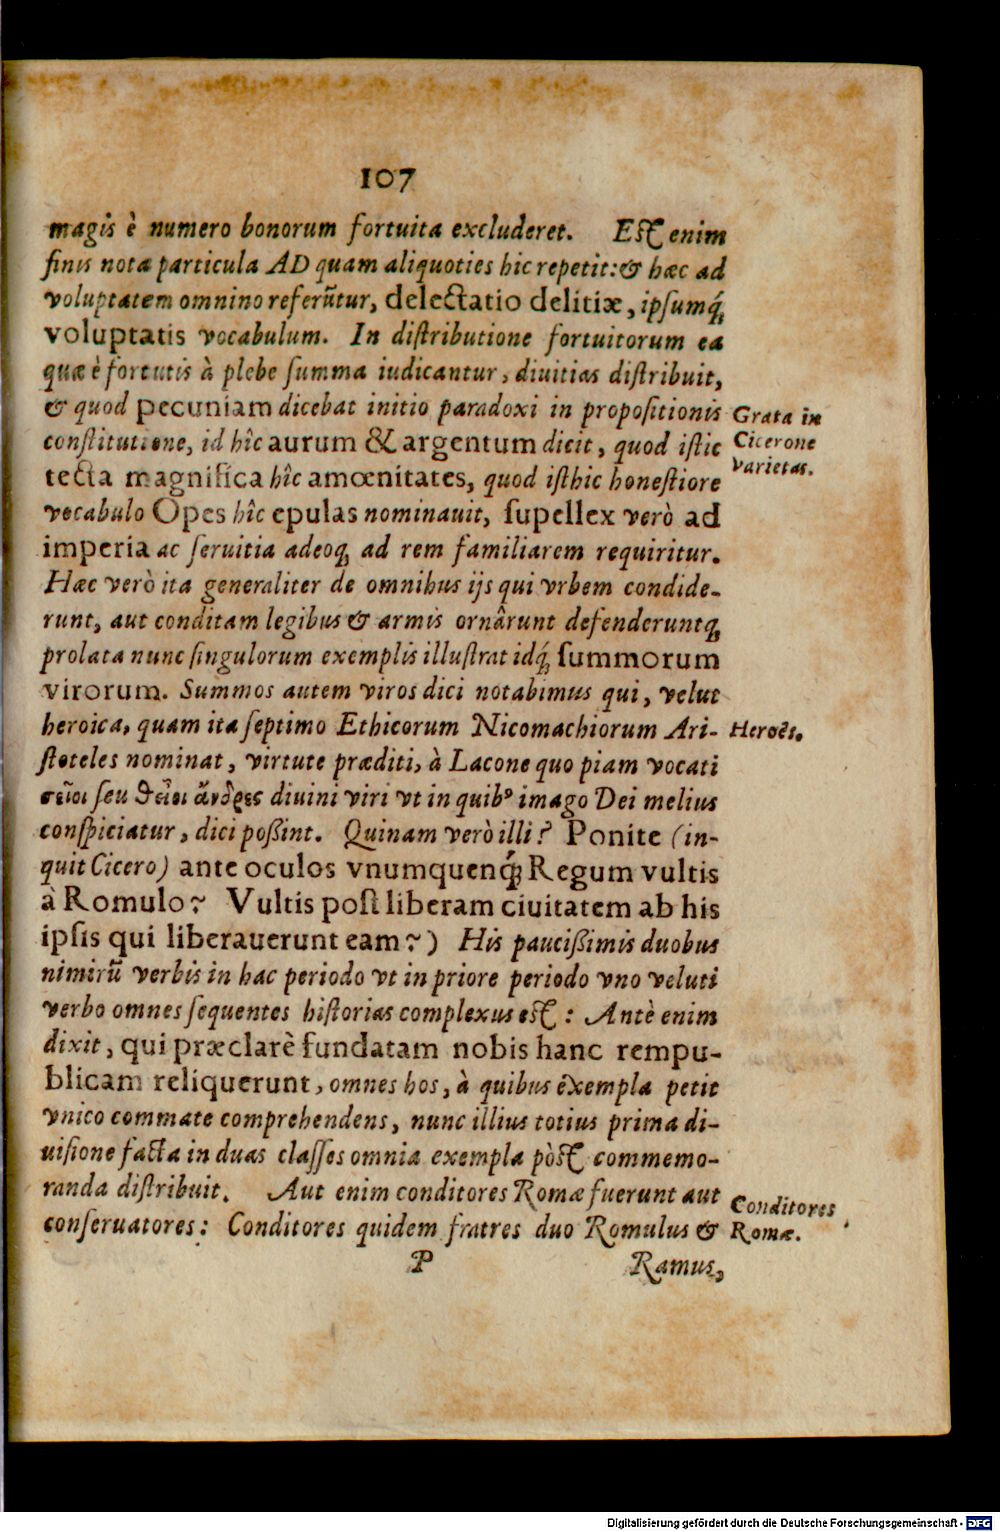 107
magis è numero bonorum fortuita excluderet. Est enim
finis nota particula AD quam aliquoties hic repetit: & hæc ad
voluptatem omnino referũtur, delectatio delitiæ, ipsumq́;
voluptatis vocabulum. In distributione fortuitorum ea
quæ è fortutis à plebe summa iudicantur, diuitias distribuit,
& quod pecuniam dicebat initio paradoxi in propositionis
Grata in
constitutione, id hîc aurum & argentum dicit, quod istic
Cicerone
varietas.
tecta magnifica hîc amœnitates, quod isthic honestiore
vocabulo Opes hîc epulas nominauit, supellex verò ad
imperia ac seruitia adeoq; ad rem familiarem requiritur.
Hæc verò ita generaliter de omnibus ijs qui vrbem condide-
runt, aut conditam legibus & armis ornârunt defenderuntq;
prolata nunc singulorum exemplis illustrat idq́; summorum
virorum. Summos autem viros dici notabimus qui, velut
heroica, quam ita septimo Ethicorum Nicomachiorum Ari-
Heroês.
stoteles nominat, virtute præditi, à Lacone quo piam vocati
σεῖοι seu θεῖοι ἄνδρες diuini viri vt in quibꝰ imago Dei melius
conspiciatur, dici poßint. Quinam verò illi? Ponite (in-
quit Cicero) ante oculos vnumquenq́; Regum vultis
à Romulo? Vultis post liberam ciuitatem ab his
ipsis qui liberauerunt eam?) His paucißimis duobus
nimirũ verbis in hac periodo vt in priore periodo vno veluti
verbo omnes sequentes historias complexus est: Antè enim
dixit, qui præclarè fundatam nobis hanc rempu-
blicam reliquerunt, omnes hos, à quibus exempla petit
vnico commate comprehendens, nunc illius totius prima di-
uisione facta in duas classes omnia exempla pòst commemo-
randa distribuit. Aut enim conditores Romæ fuerunt aut
Conditores
conseruatores: Conditores quidem fratres duo Romulus &
Romæ.
P
Ramus,
Digitalisierung gefördert durch die Deutsche Forschungsgemeinschaft - DFG